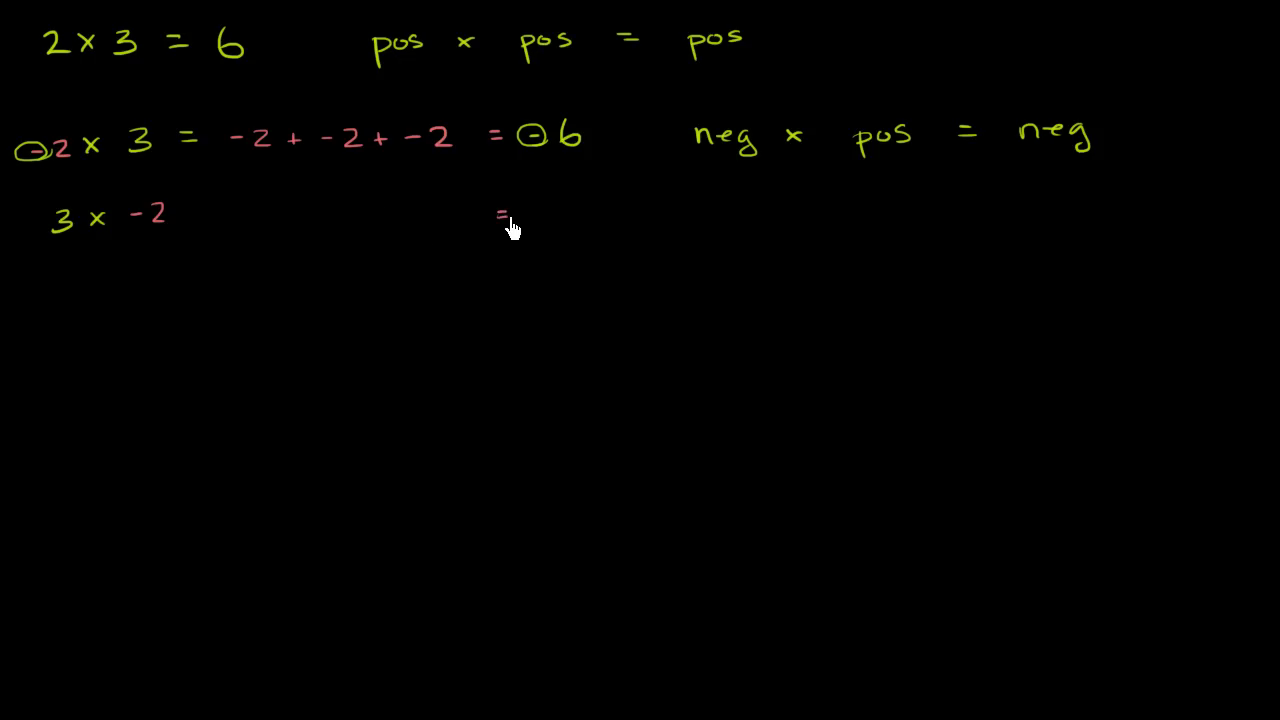 2 × 3 = 6 pos × pos = pos
-2 × 3 = -2 + -2 + -2 = -6 neg × pos = neg
3 × -2 =